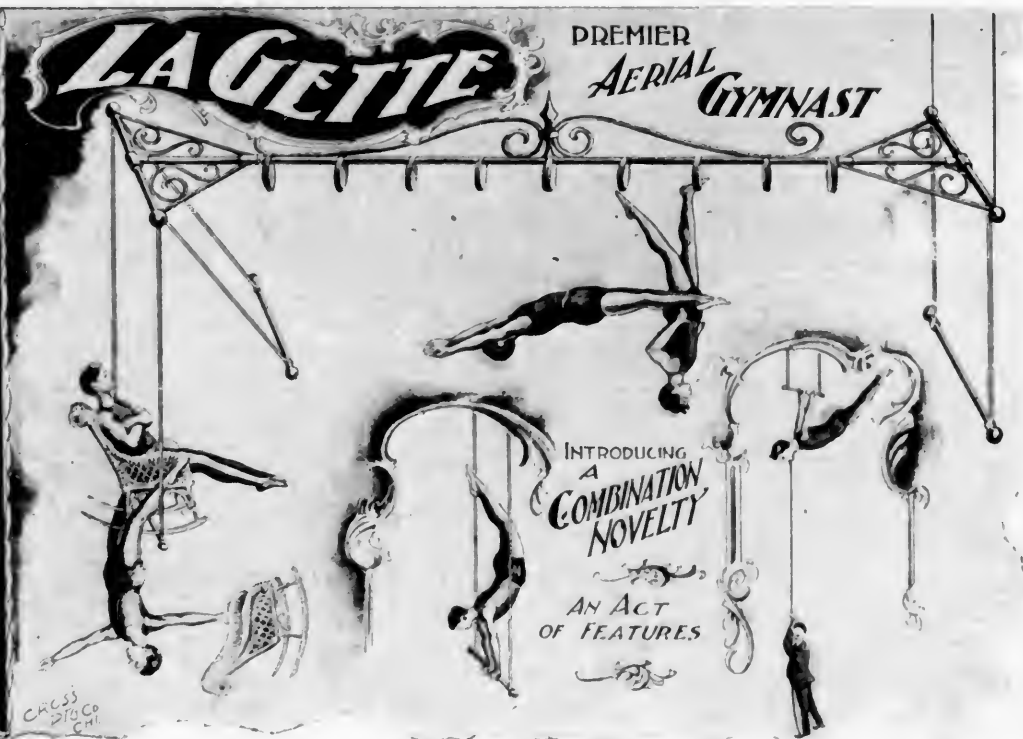 LA GETTE
PREMIER
AERIAL
GYMNAST
INTRODUCING
A
COMBINATION
NOVELTY
AN ACT
OF FEATURES
CROSS
CHI.